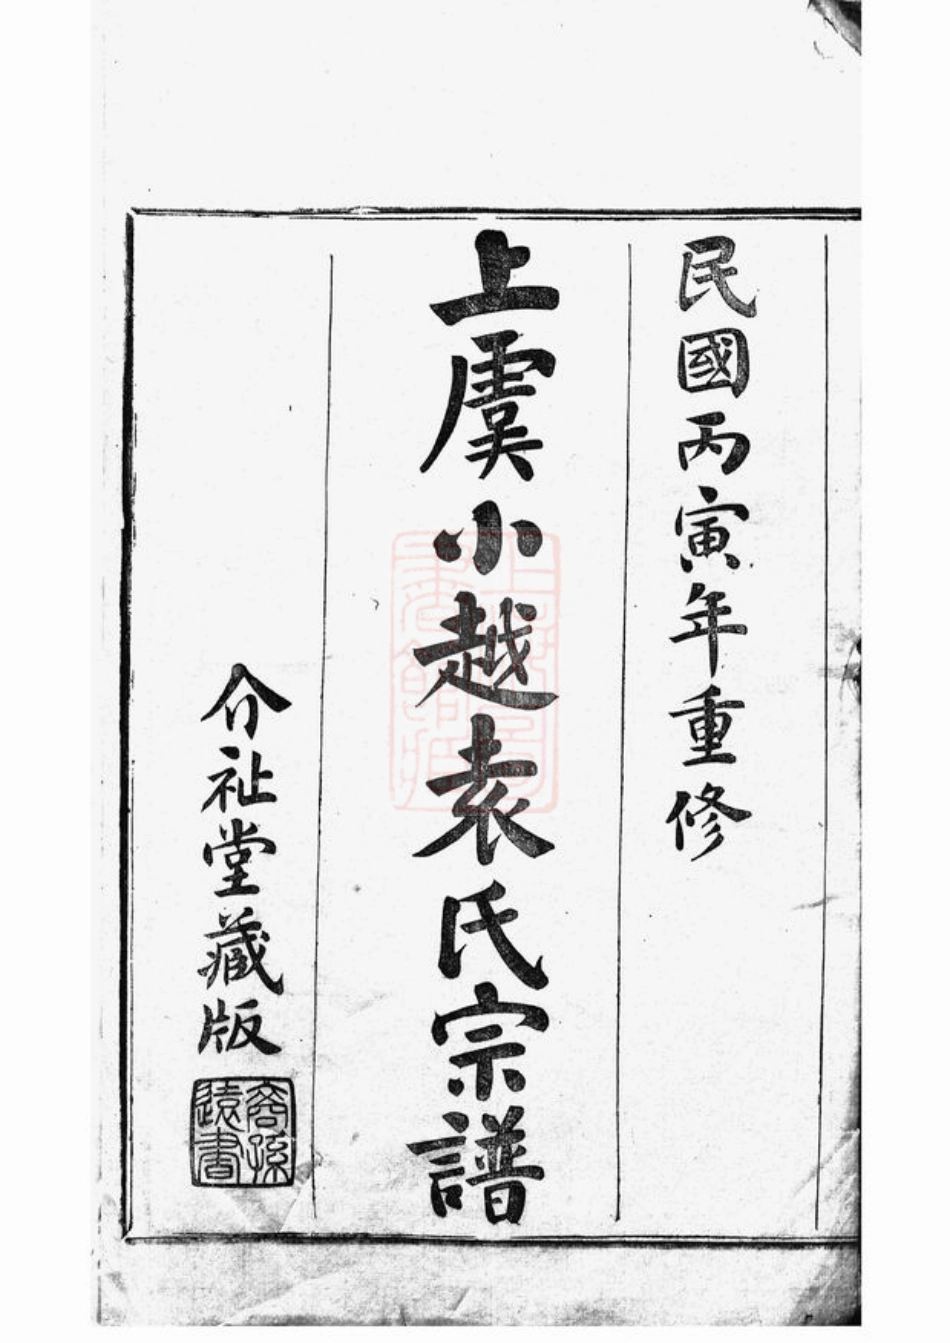 民國丙寅年重修
上虞小越袁氏宗譜
介祉堂藏版